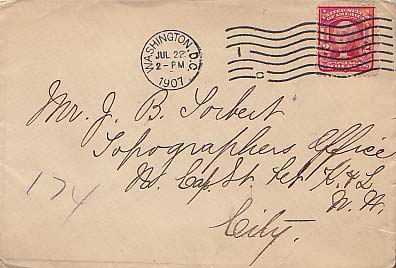 WASHINGTON, D.C.
JUL 22
2-PM
1907
1
C
Mr. J. B. Torbert
Topographers Office
No. Cap. St. bet. K. & L
N. W.
City.
174